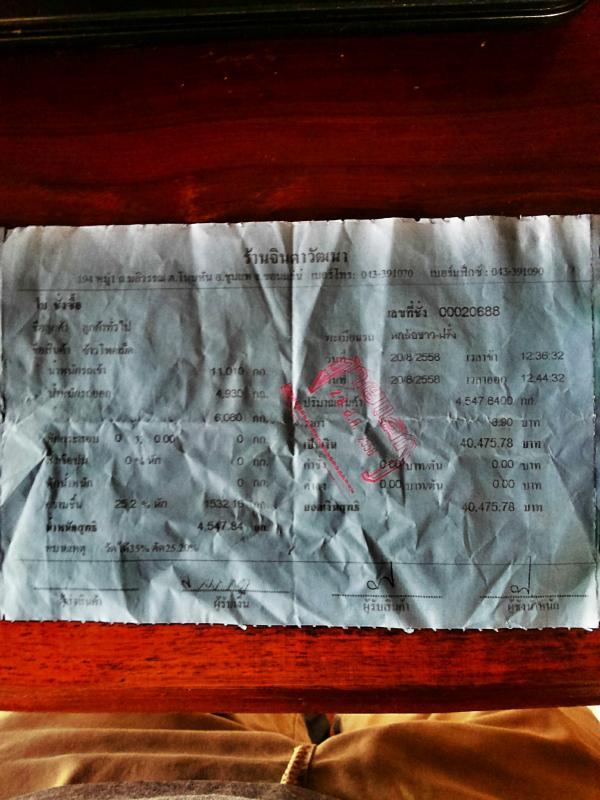 ร้านจินดาวัฒนา
194 หมู่1 ถ.มลิวรรณ ต.โนนหัน อ.ชุมแพ จ.ขอนแก่น เบอร์โทร: 043-391070 เบอร์แฟ็กซ์ : 043-391090
ใบ ชั่งซื้อ เลขที่ชั่ง 00020688
ชื่อลูกค้า ลูกค้าทั่วไป ทะเบียนรถ หกล้อขาว-ฝรั่ง
ชื่อสินค้า ข้าวโพดเม็ด วันที่ 20/8/2558 เวลาเข้า 12:36:32
น้ำหนักรถเข้า 11,010 กก. วันที่ 20/8/2558 เวลาออก 12:44:32
น้ำหนักรถออก 4,930 กก. ปริมาณสินค้า 4,547.8400 กก.
6,080 กก. ราคา 8.90 บาท
หักกระสอบ 0 0.00 0 กก. เป็นเงิน 40,475.78 บาท
0 % หัก 0 กก. ค่าชั่ง 0.00 บาท/ตัน 0.00 บาท
หักน้ำหนัก 0 กก. ค่าลง 0.00 บาท/ตัน 0.00 บาท
ความชื้น 25.2 % หัก 1532.16 กก. ยอดเงินสุทธิ 40,475.78 บาท
น้ำหนักสุทธิ 4,547.84 กก.
หมายเหตุ วัดได้35% ตัด25.20%
ผู้ส่งสินค้า ผู้รับเงิน ผู้รับสินค้า ผู้ชั่งน้ำหนัก